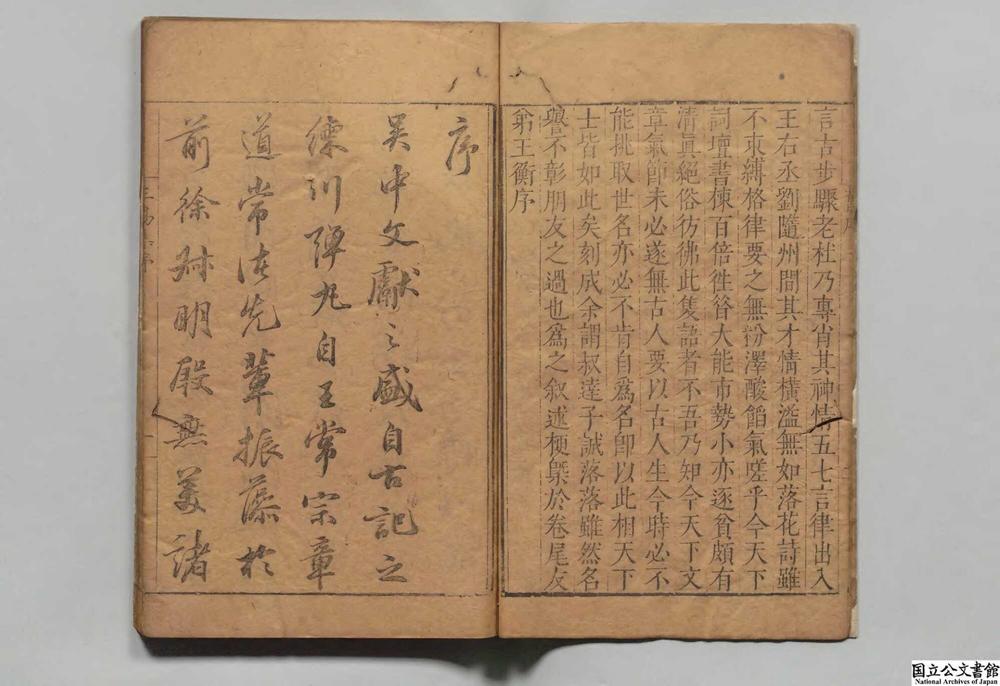 言古步驟老杜乃專肖其神情五七言律出入
王右丞劉隨州間其才情橫溢無如落花詩雖
不束縛格律要之無粉澤酸餡氣嗟乎今天下
詞壇書棟百倍徃昝大能市勢小亦逐貧頗有
清眞絕俗彷彿此隻語者不吾乃知今天下文
章氣節未必遂無古人要以古人生今時必不
能挑取世名亦必不肯自爲名卽以此相天下
士皆如此矣刻成余謂叔達子誠落落雖然名
譽不彰朋友之過也爲之叙述梗槩於卷尾友
弟王衡序
序
吳中文獻之盛自古記之
練川彈丸自王常宗章
道常諸先輩振藻於
前徐叔明殷無美諸
国立公文書館
National Archives of Japan